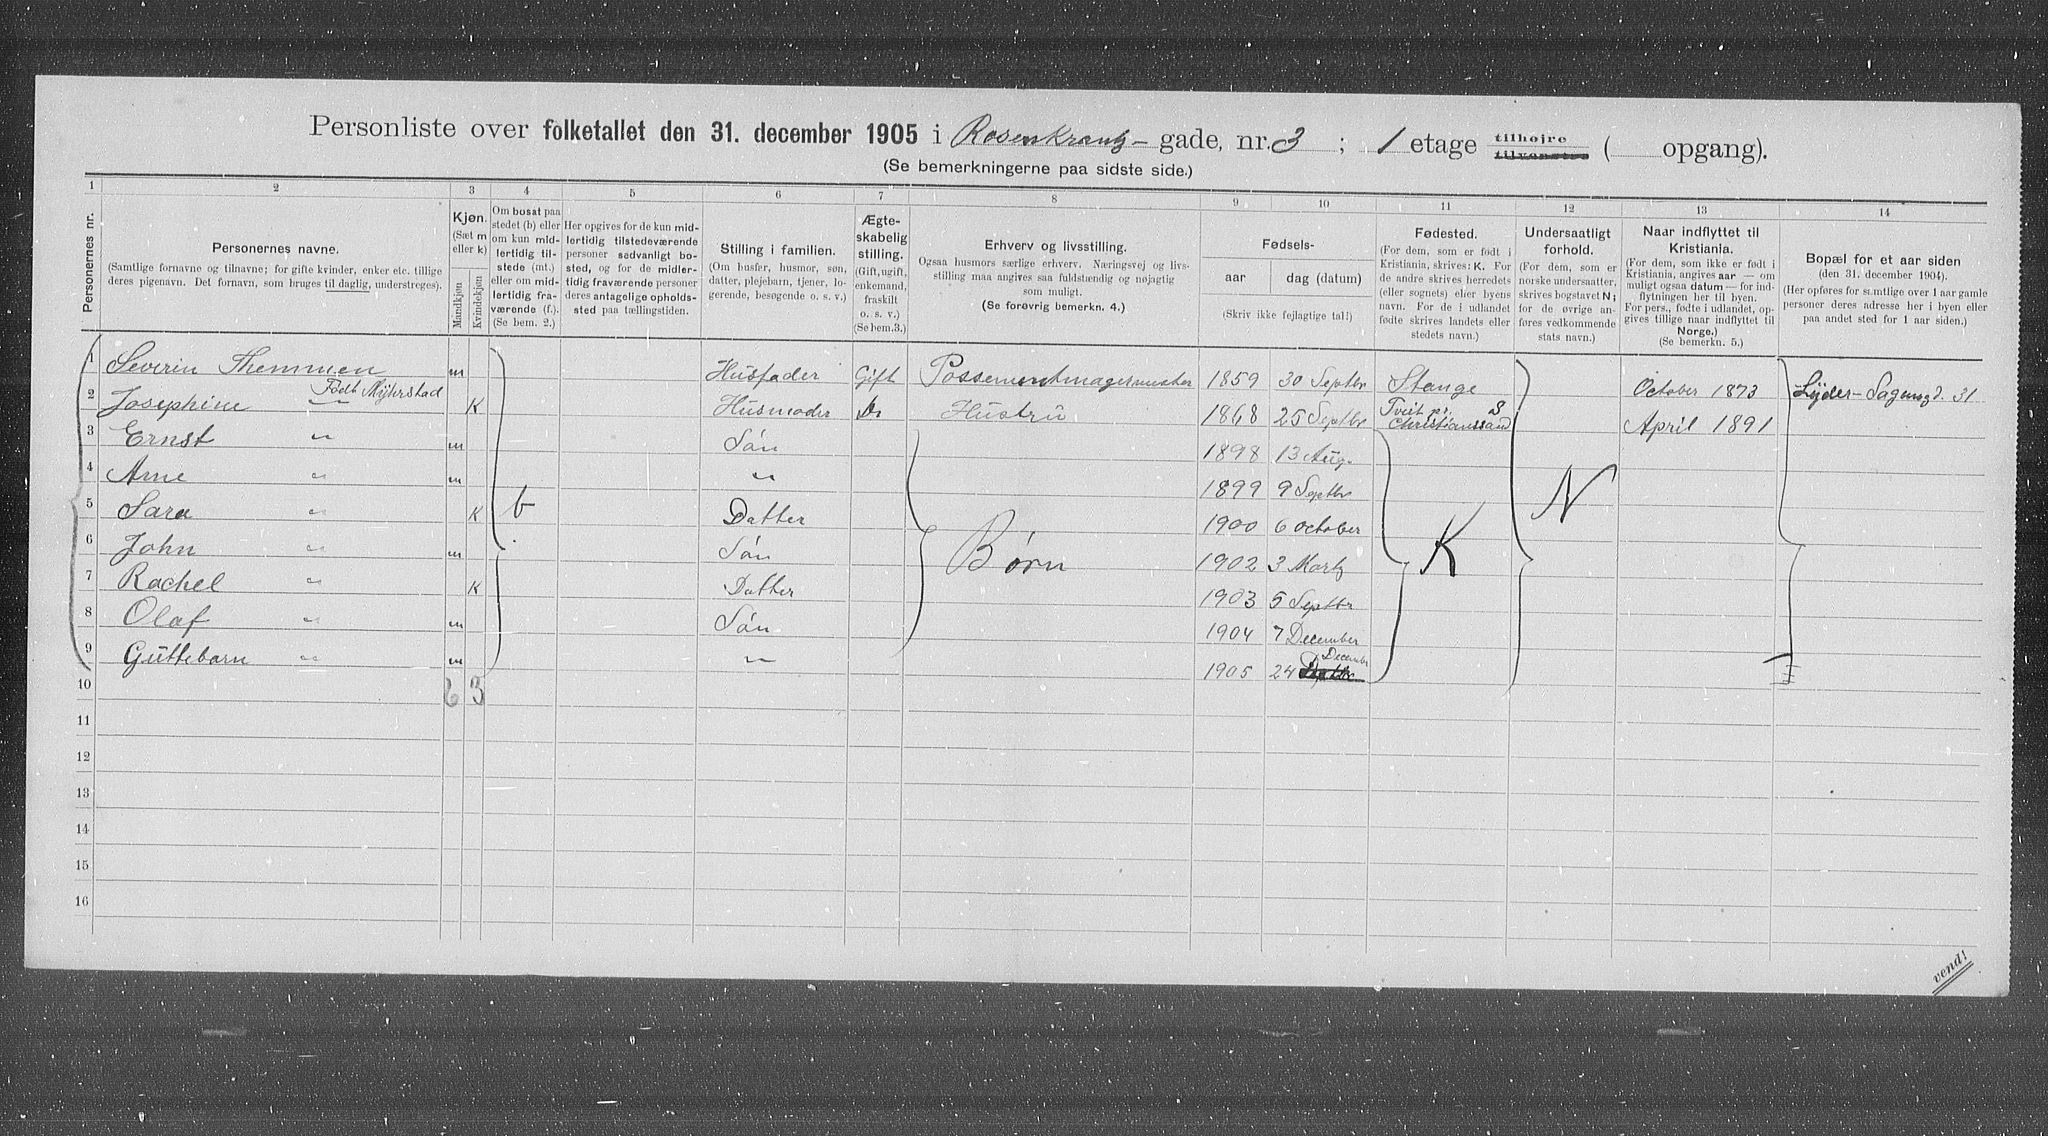 Personliste over folketallet den 31. december 1905 i Rosenkrantz- gade, nr. 3 ; 1 etage tilhøjre tilvenstre ( opgang).
(Se bemerkningerne paa sidste side.)
1 2 3 4 5 6 7 8 9 10 11 12 13 14
Personernes nr.
Personernes navne.
(Samtlige fornavne og tilnavne; for gifte kvinder, enker etc. tillige
deres pigenavn. Det fornavn, som bruges til daglig, understreges).
Kjøn.
(Sæt m
eller k)
Mandkjøn
Kvindekjøn
Om bosat paa
stedet (b) eller
om kun mid-
lertidig til-
stede (mt.)
eller om mid-
lertidig fra-
værende (f.).
(Se bem. 2.)
Her opgives for de kun mid-
lertidig tilstedeværende
personer sædvanligt bo-
sted, og for de midler-
tidig fraværende personer
deres antagelige opholds-
sted paa tællingstiden.
Stilling i familien.
(Om husfer, husmor, søn,
datter, plejebarn, tjener, lo-
gerende, besøgende o. s. v.)
Ægte-
skabelig
stilling.
(Gift, ugift,
enkemand,
fraskilt
o. s. v.)
(Se bem. 3.)
Erhverv og livsstilling.
Ogsaa husmors særlige erhverv. Næringsvej og livs-
stilling maa angives saa fuldstændig og nøjagtig
som muligt.
(Se forøvrig bemerkn. 4.)
Fødsels-
aar dag (datum)
(Skriv ikke fejlagtige tal!)
Fødested.
(For dem, som er født i
Kristiania, skrives: K. For
de andre skrives herredets
(eller sognets) eller byens
navn. For de i udlandet
fødte skrives landets eller
stedets navn.)
Undersaatligt
forhold.
(For dem, som er
norske undersaatter,
skrives bogstavet N;
for de øvrige an-
føres vedkommende
stats navn.)
Naar indflyttet til
Kristiania.
(For dem, som ikke er født i
Kristiania, angives aar — om
muligt ogsaa datum — for ind-
flytningen her til byen.
For pers., fødte i udlandet, op-
gives tillige naar indflyttet til
Norge.)
(Se bemerkn. 5.)
Bopæl for et aar siden
(den 31. december 1904).
(Her opføres for samtlige over 1 aar gamle
personer deres adresse her i byen eller
paa andet sted for 1 aar siden.)
1 Severin Themmen m Husfader Gift Possementmagermester 1859 30 Septbr Stange October 1873 Lyder-Sagensgd. 31
Født Myhrstad
2 Josephine " K Husmoder Do Hustru 1868 25 Septbr Tveit pr. Christianssand S April 1891
3 Ernst " m Søn 1898 13 Aug.
4 Arne " m " 1899 9 Septbr
5 Sara " K b Datter 1900 6 October N
6 John " m Søn Børn 1902 3 Marts K
7 Rachel " K Datter 1903 5 Septbr
8 Olaf " m Søn 1904 7 December
9 Guttebarn " m " 1905 24 December
10 6 3
11
12
13
14
15
16
vend!